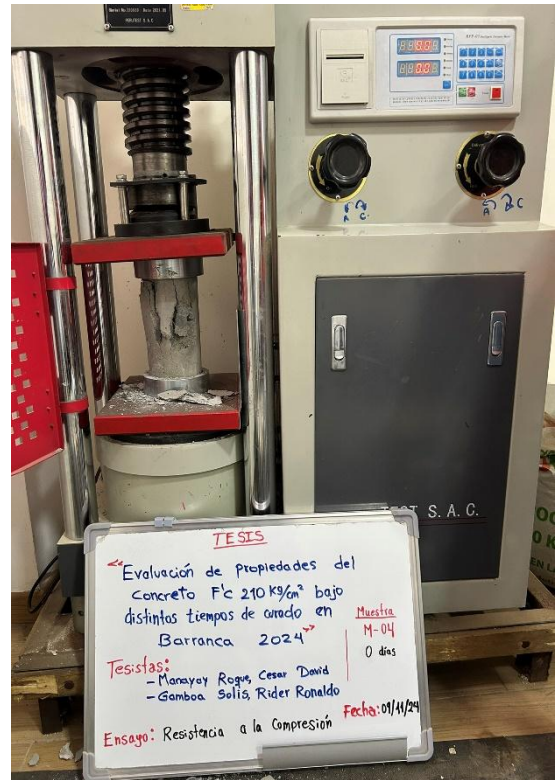 TESIS
"Evaluación de propiedades del
Concreto F'c 210 Kg/cm² bajo
distintos tiempos de curado en
Barranca 2024"
Muestra
M-04
0 días
Tesistas:
- Manayay Rogue, Cesar David
- Gamboa Solis, Rider Ronaldo
Fecha: 09/11/24
Ensayo: Resistencia a la Compresión
TEST S. A. C.
A C
A C